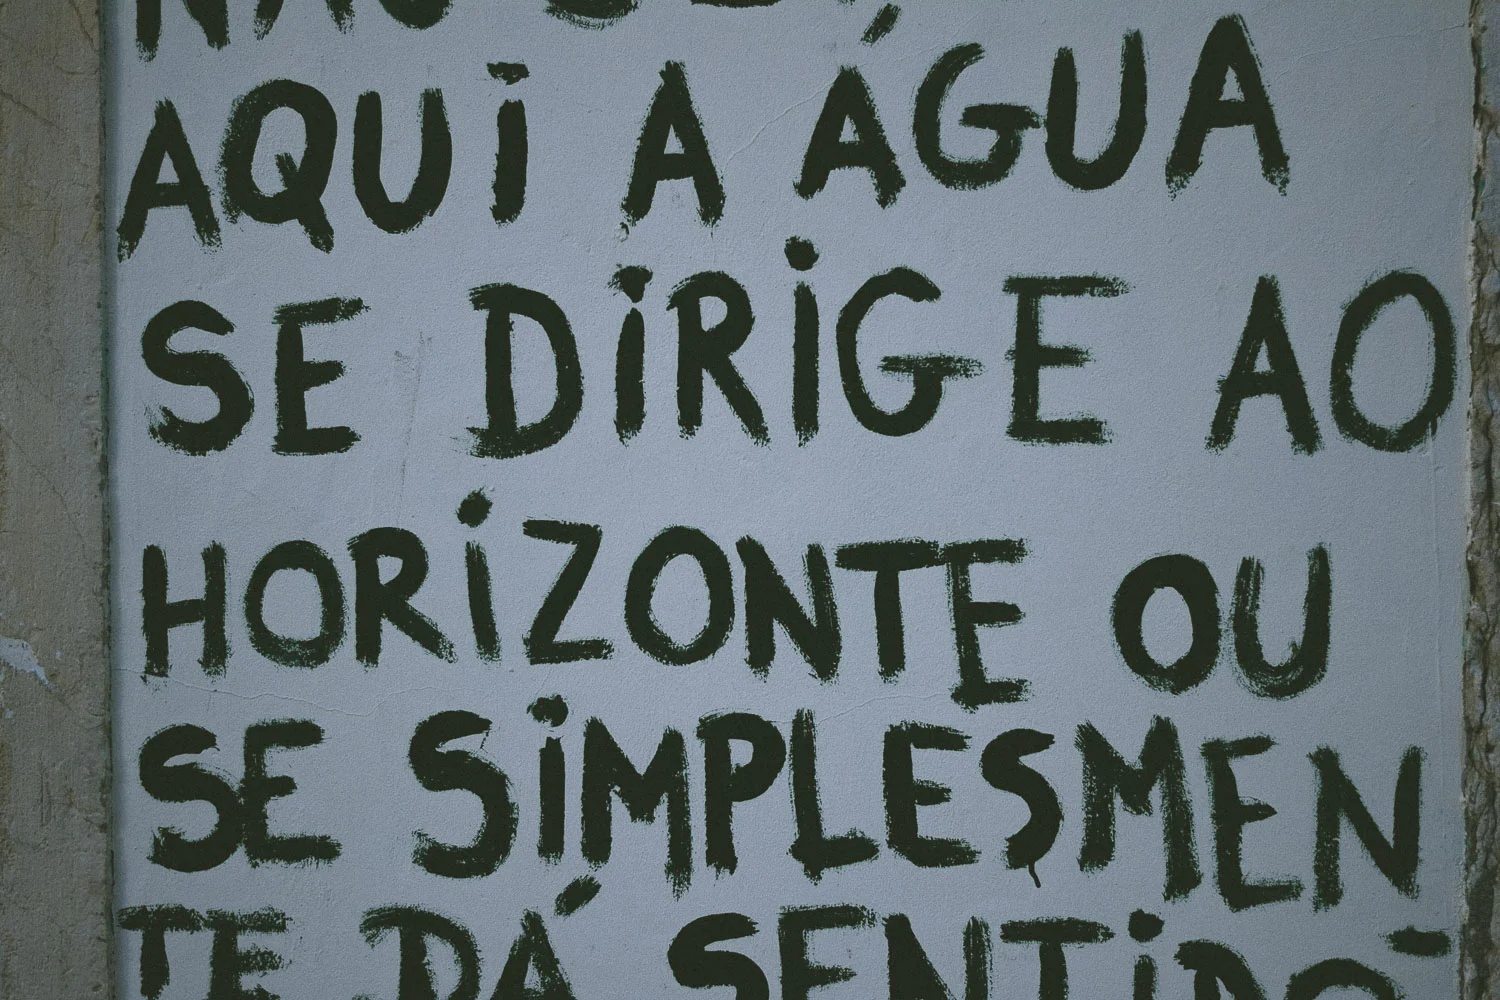 NÃO SEI,
AQUI A ÁGUA
SE DIRIGE AO
HORIZONTE OU
SE SIMPLESMEN
TE DÁ SENTIDO